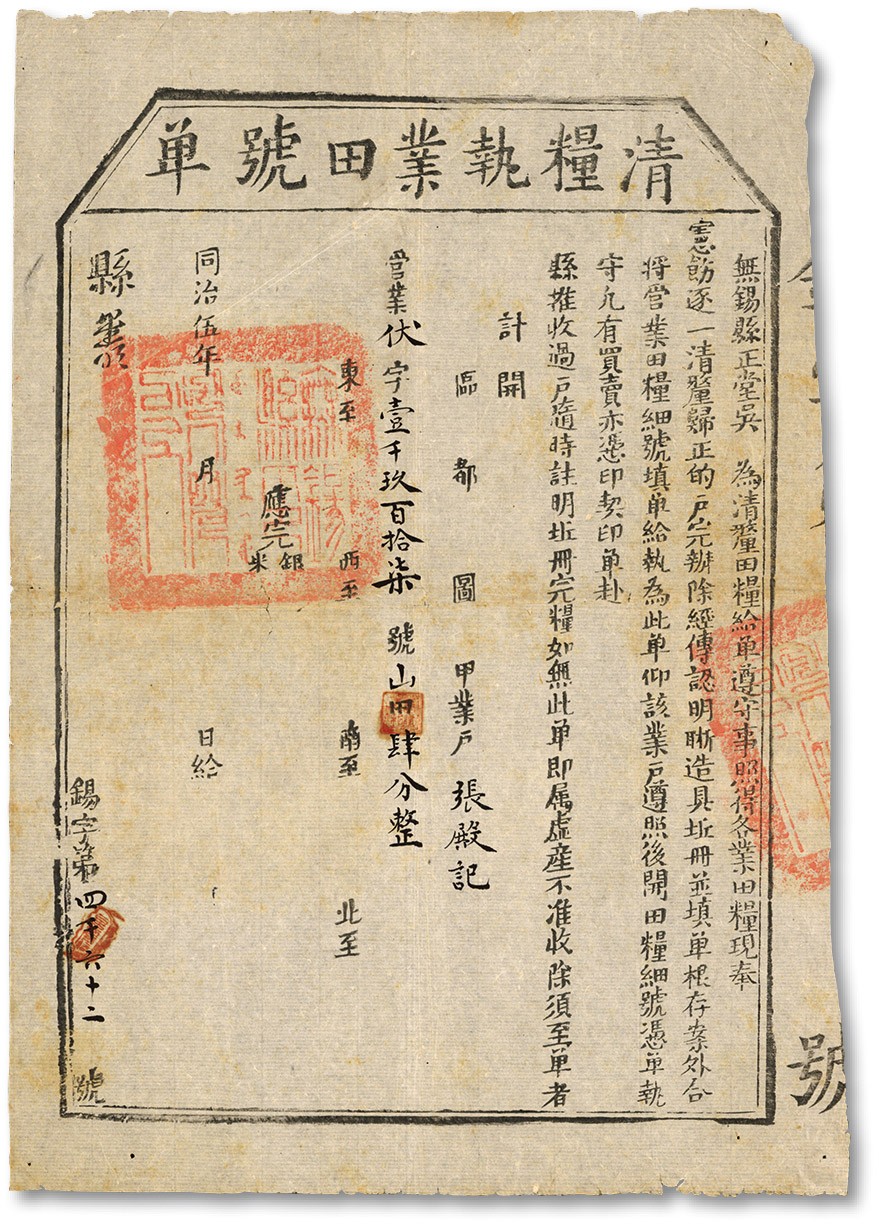 清糧執業田號单
無錫縣正堂吳　為清釐田糧給单遵守事照得各業田糧現奉
憲飭逐一清釐歸正的戶完辦除經傳認明晰造具坵冊並填单根存案外合
將營業田糧細號填单給執為此单仰該業戶遵照後開田糧細號憑单執
守凢有買賣亦憑印契印单赴
縣推收過戶隨時註明坵冊完糧如無此单即属虚産不准收除須至单者
計開
區　都　圖　甲業戶　張殿記
營業伏字壹千玖百拾柒　號山田肆分整
東至　西至　南至　北至
應完　銀　米
同治伍年　月　日給
縣
錫字第四千六十二號
號